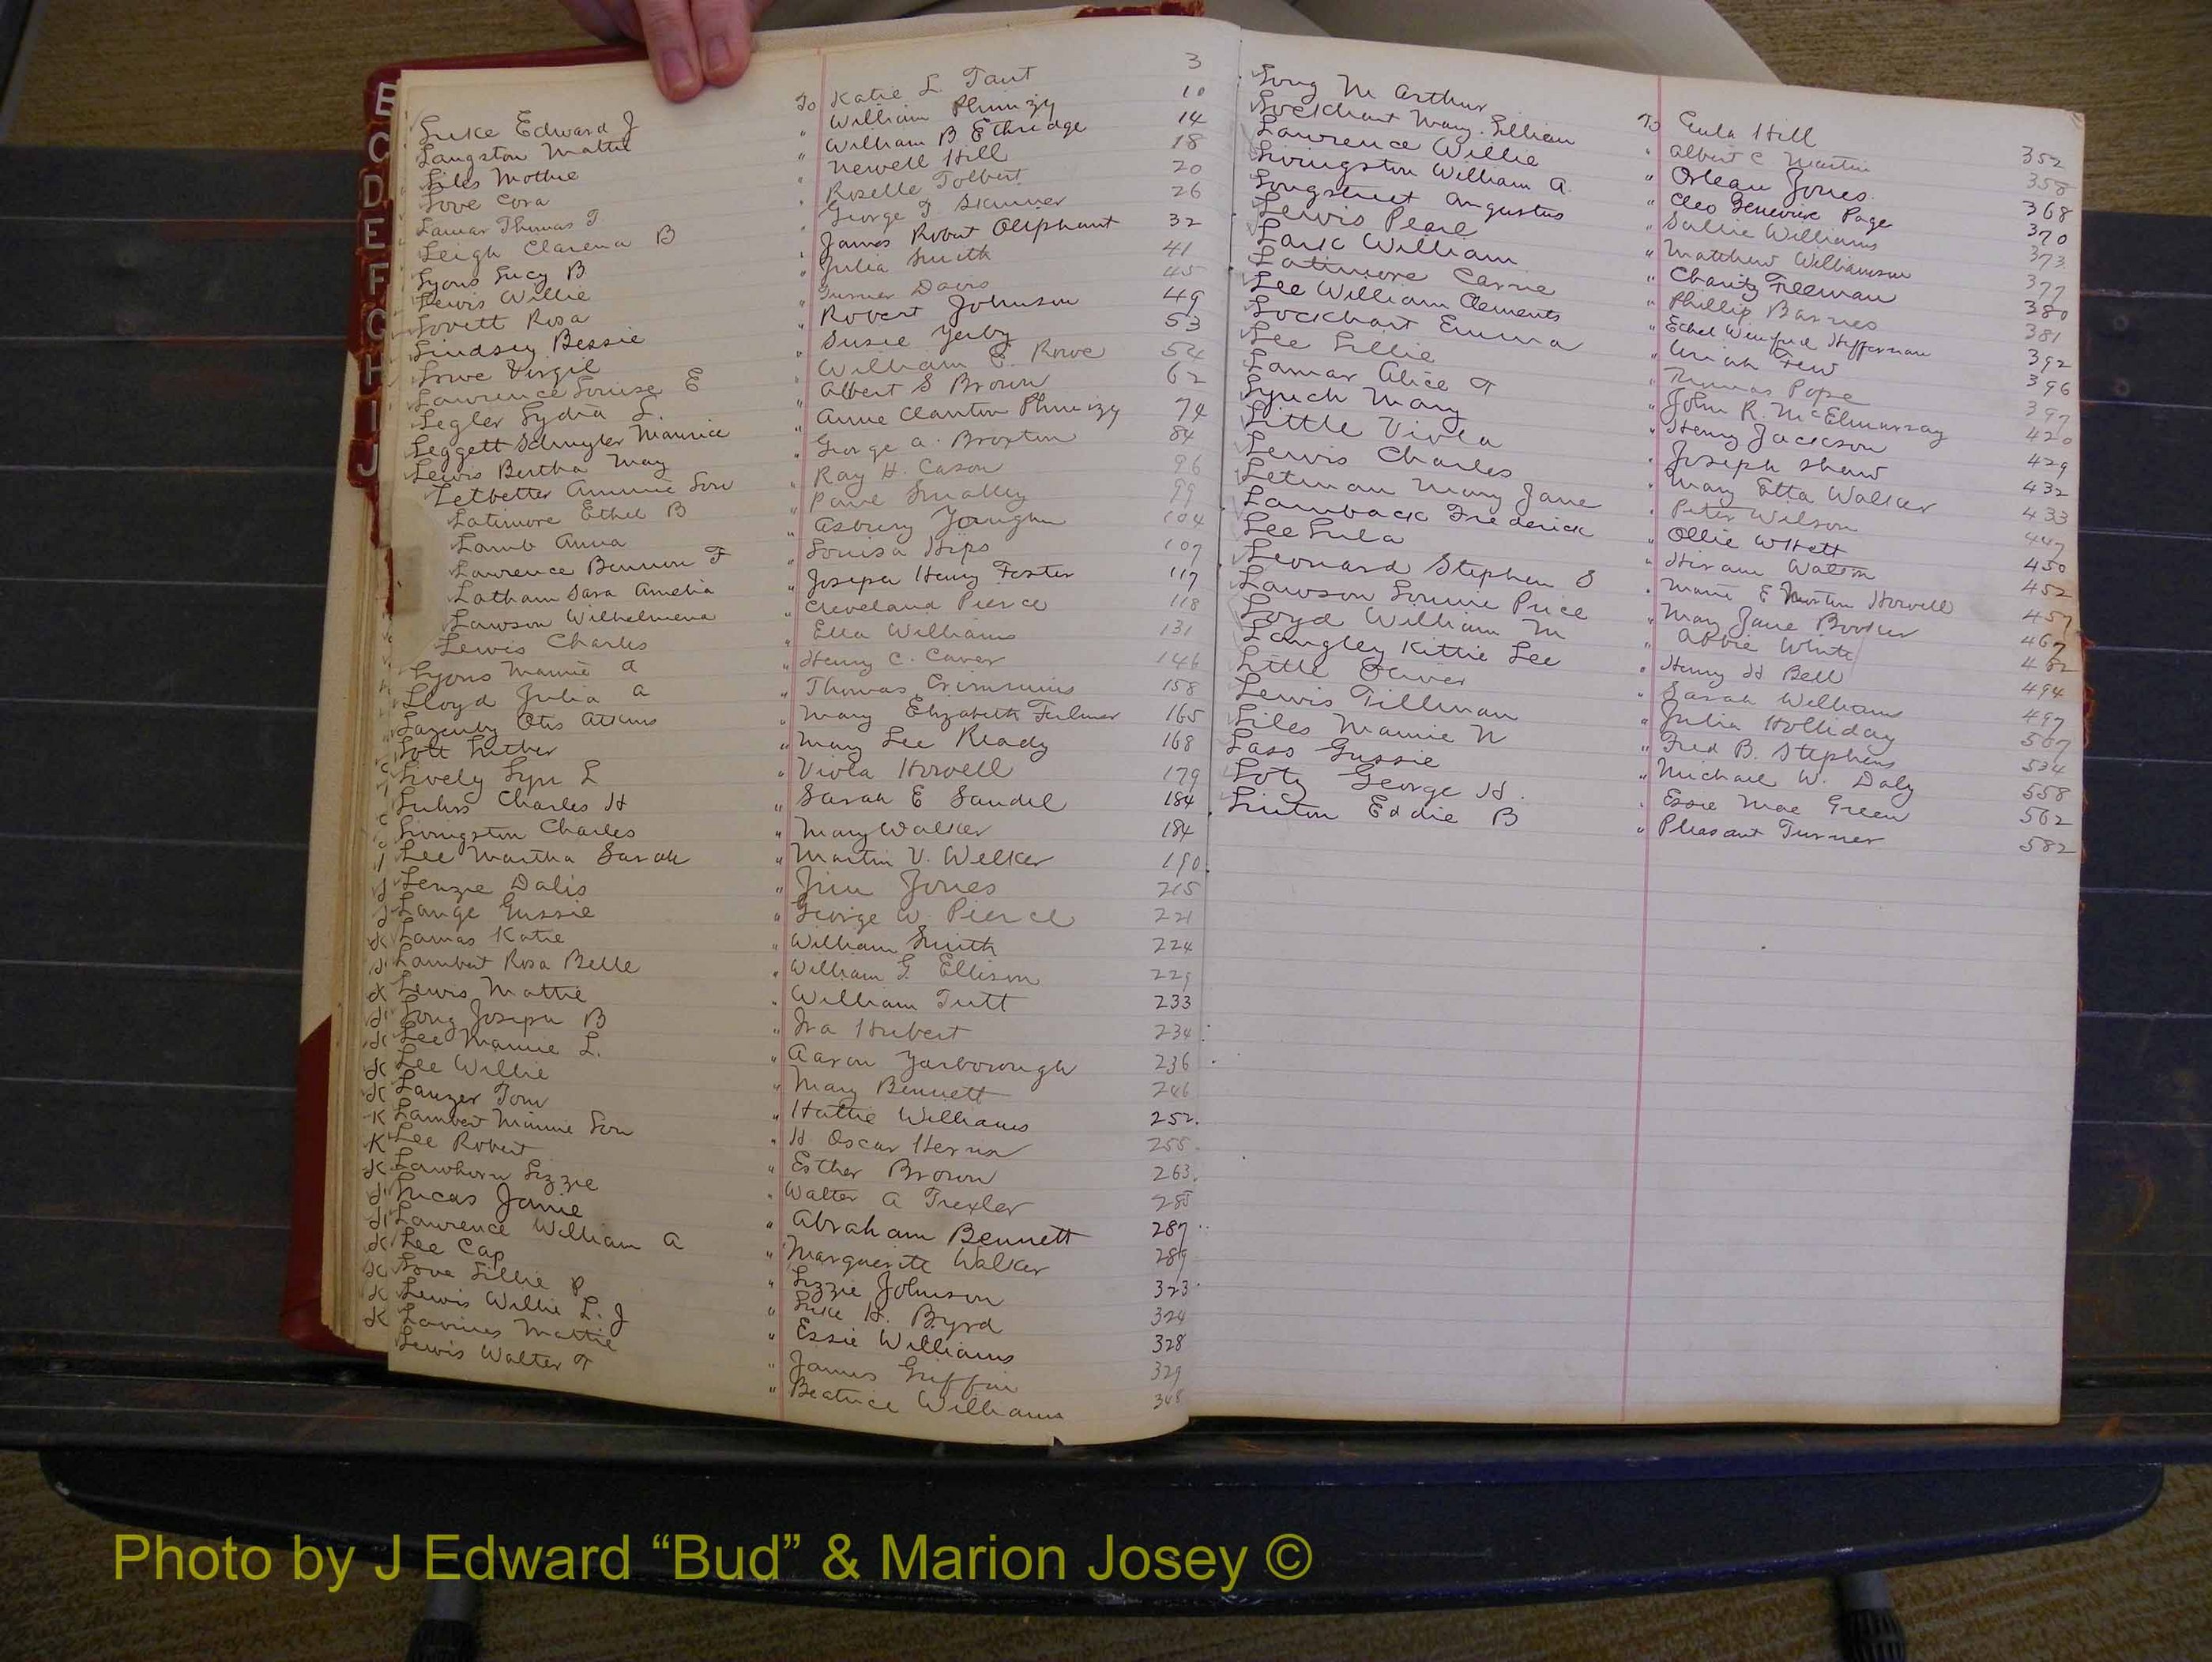 B
C
D
E
F
G
H
I
J
Luke Edward J To Katie L. Tant 3
Langston Mattie " William Phinizy 10
Liles Mottie " William B Ethridge 14
Love Cora " Newell Hill 18
Lamar Thomas T " Roselle Tolbert 20
Leigh Clarena B " George T. Skinner 26
Lyons Lucy B " James Robert Oliphant 32
Lewis Willie " Julia Smith 41
Lovett Rosa " Turner Davis 45
Lindsey Bessie " Robert Johnson 49
Lowe Virgil " Susie Yerby 53
Lawrence Louise E " William E. Rowe 54
Legler Lydia L. " Albert S Brown 62
Leggett Schuyler Maurice " Anne Clanton Phinizy 74
Lewis Bertha May " George A. Broxton 84
Letbetter Annie Lou " Ray H. Cason 96
Latimore Ethel B " Smalley 99
Lamb Anna " Asbury 104
Lawrence Bennon F " Louisa Hips 107
Latham Sara Amelia " Joseph Henry Foster 117
Lawson Wilhelmena " Cleveland Pierce 118
Lewis Charles " Ella Williams 131
Lyons Mamie A " Henry C. Carver 146
Lloyd Julia A " Thomas Crimmins 158
Lazenby Otis Atkins " Mary Elizabeth Fulmer 165
Lott Luther " Mary Lee Ready 168
Lively Lyn L " Viola Howell 179
Luhrs Charles H " Sarah E Sandel 184
Livingston Charles " Mary Walker 184
Lee Martha Sarah " Martin V. Welker 190
Lenzie Dalis " Jim Jones 215
Lange Gussie " George W. Pierce 221
Lamas Katie " William Smith 224
Lambert Rosa Belle " William G. Ellison 229
Lewis Mattie " William Tutt 233
Long Joseph B " Ira Hubert 234
Lee Mamie L. " Aaron Yarborough 236
Lee Willie " Mary Bennett 246
Lanzer Tom " Hattie Williams 252
Lambert Minnie Lou " H. Oscar Herrin 255
Lee Robert " Esther Brown 263
Lawhorn Lizzie " Walter A Trexler 285
Lucas Janie " Abraham Bennett 287
Lawrence William A " Marguerite Walker 289
Lee Cap " Lizzie Johnson 323
Love Lillie P " Luke H. Byrd 324
Lewis Willie L. J " Essie Williams 328
Lavines Mattie " James Griffin 329
Lewis Walter F " Beatrice Williams 348
Long M Arthur To Eula Hill 352
Lockhart Mary Lillian " Albert C Martin 358
Lawrence Willie " Orlean Jones 368
Livingston William A. " Cleo Genevieve Page 370
Longstreet Augustus " Sallie Williams 373
Lewis Pearl " Matthew Williamson 377
Lark William " Charity Freeman 380
Latimore Carrie " Phillip Barnes 381
Lee William Clements " Ethel Winifred Heffernan 392
Lockhart Emma " Uriah Few 396
Lee Lillie " Thomas Pope 397
Lamar Alice F " John R. McElmurray 420
Lynch Mary " Henry Jackson 429
Little Viola " Joseph Shaw 432
Lewis Charles " Mary Etta Walker 433
Letman Mary Jane " Peter Wilson 447
Lamback Frederick " Ollie 450
Lee Lula " Hiram Walton 452
Leonard Stephen S " Mamie E Morton Howell 457
Lawson Lonnie Price " Mary Jane Booker 467
Loyd William M " Abbie White 482
Langley Kittie Lee " Henry H Bell 494
Little Oliver " Sarah William 497
Lewis Tillman " Julia Holliday 507
Liles Mamie N " Fred B. Stephens 534
Lass Gussie " Michael W. Daly 558
Loty George H. " Essie Mae Green 562
Linton Eddie B " Pleasant Turner 582
Photo by J Edward “Bud” & Marion Josey ©